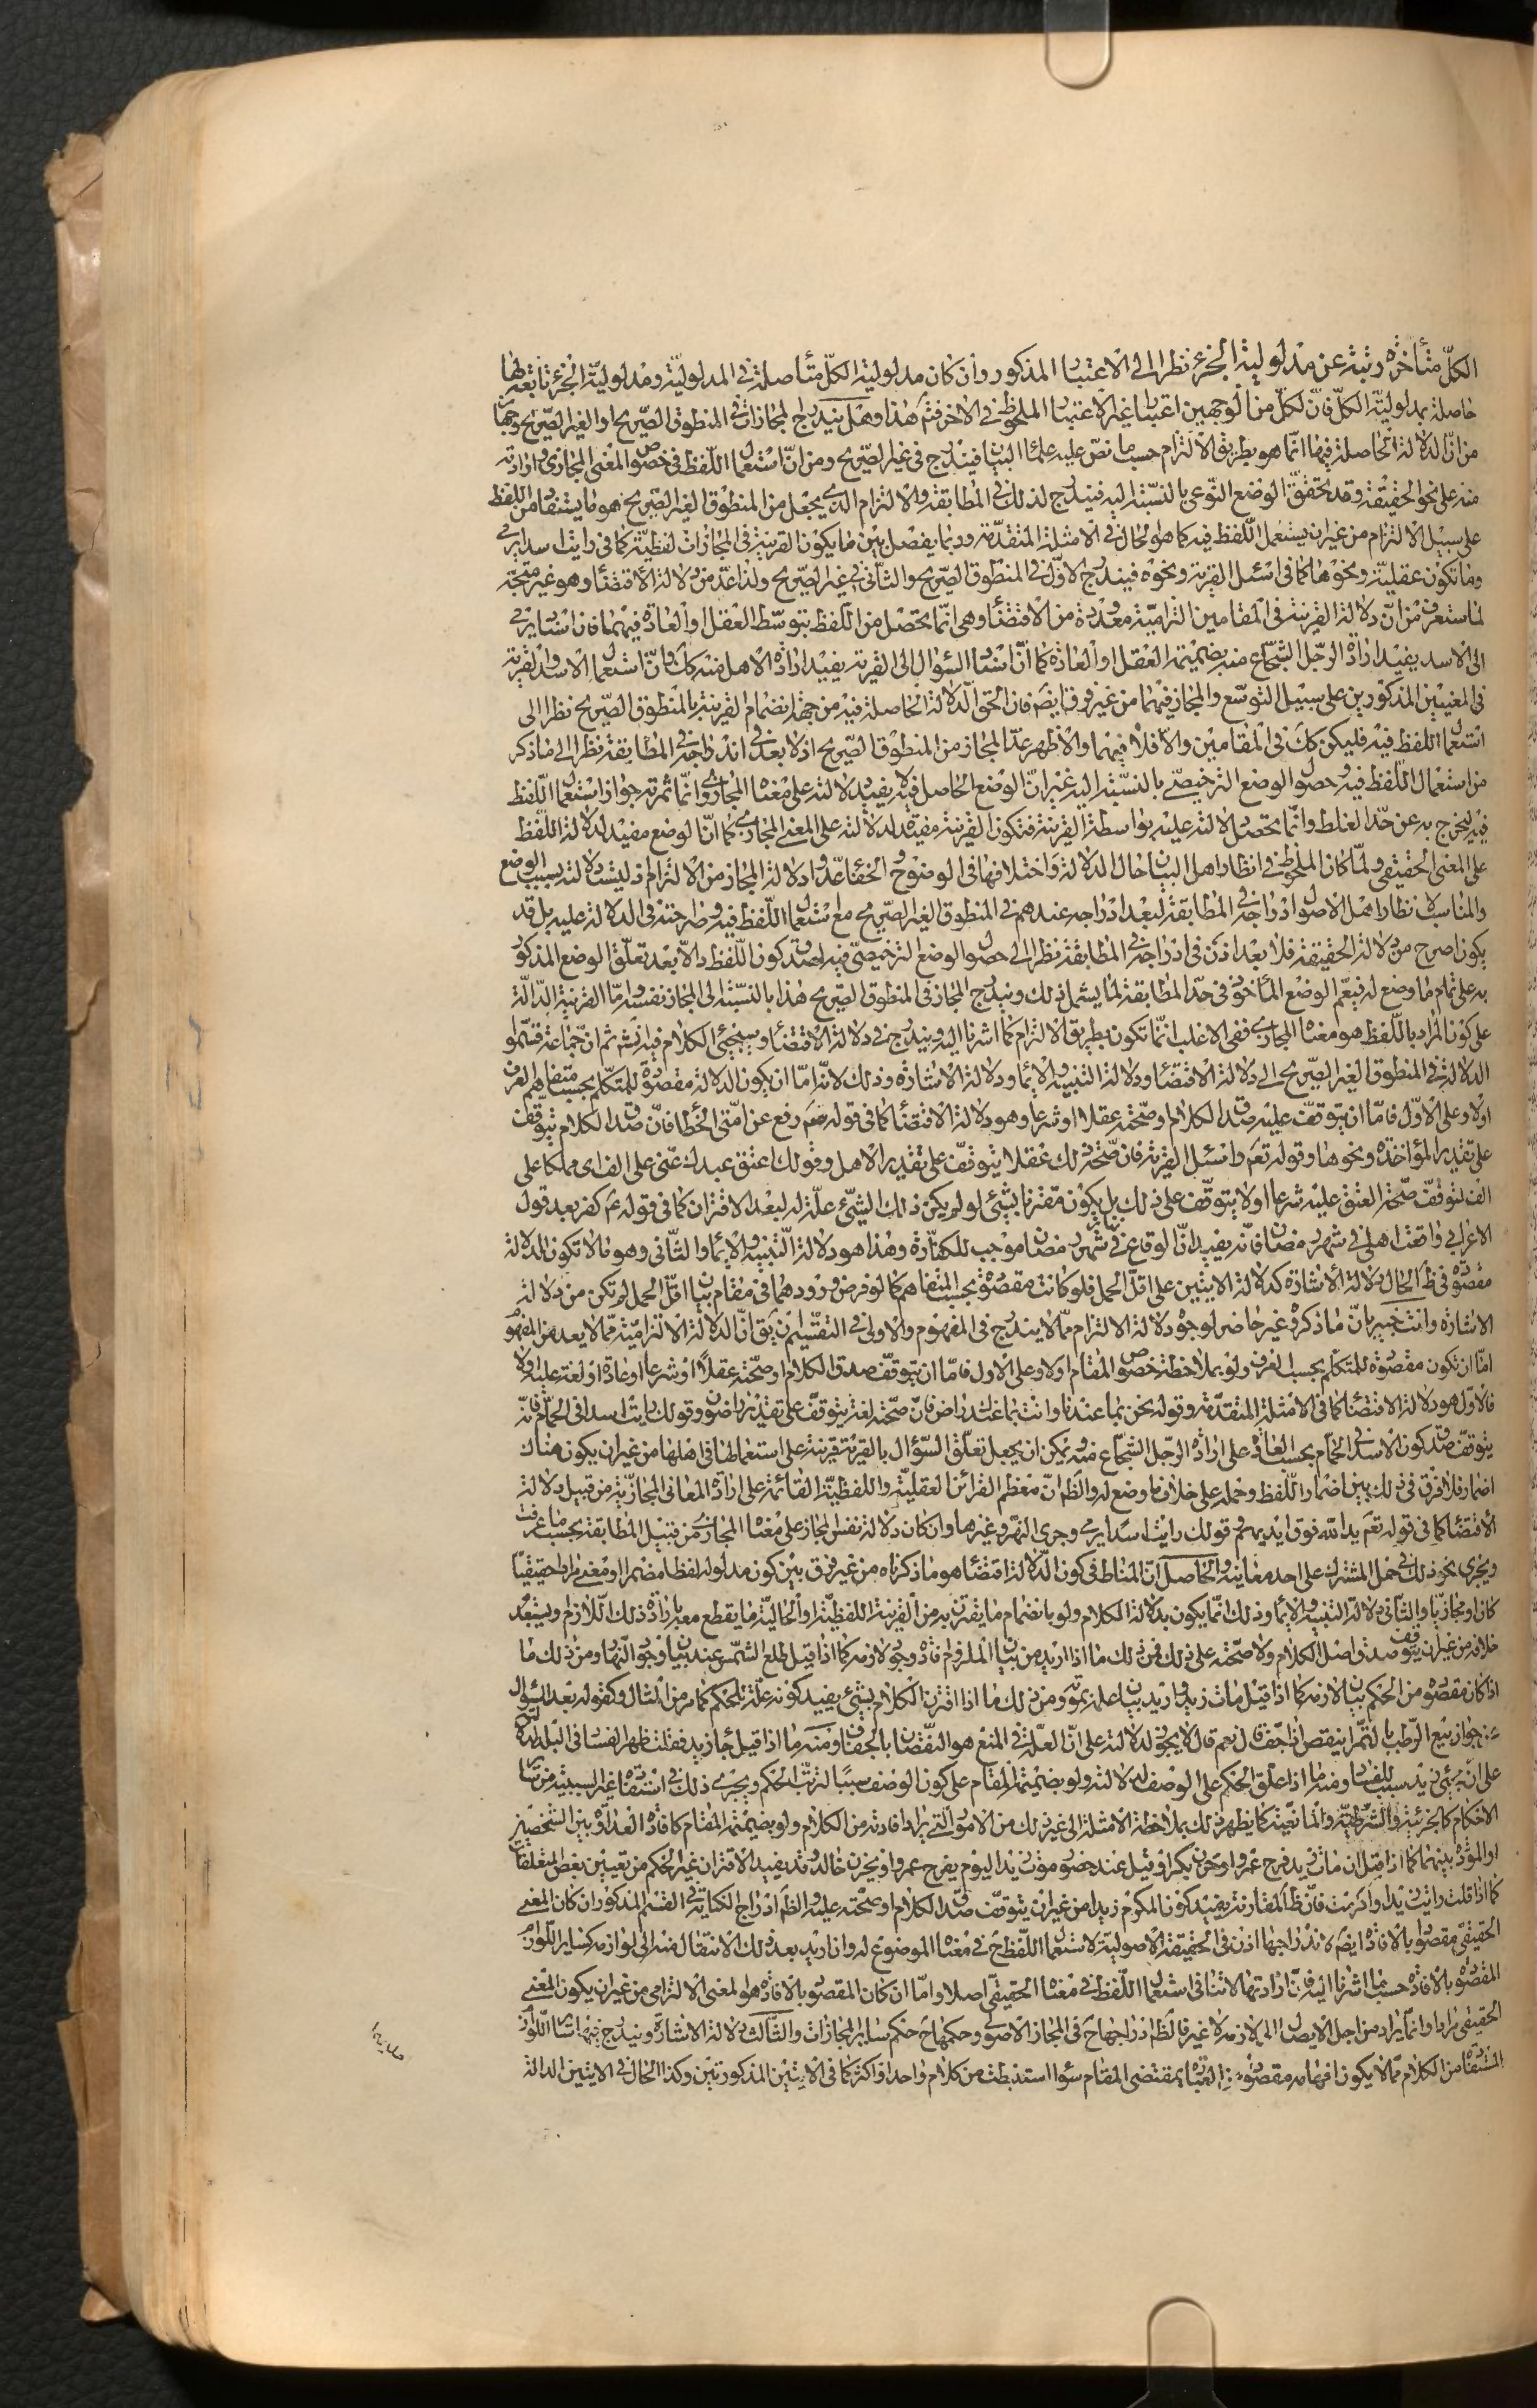 الكلّ متأخرة رتبة عن مدلولية الجزء نظرا الى الاعتبار المذكور وان كان مدلولية الكلّ متأصلة في المدلوليّة ومدلوليّة الجزء تابعة لها
حاصلة بمدلوليّة الكلّ فانّ لكلّ من الوجهين اعتبارا غير الاعتبار الملحوظ في الاخر فتم هذا وهل يندرج المجازات في المنطوق الصّريح او الغير الصّريح وجهان
من انّ الدلالة الحاصلة فيها انّما هو بطريق الالتزام حسب ما نصّ عليه علماء البيان فيندرج في غير الصّريح ومن انّ استعمال اللّفظ في خصوص المعنى المجازي وارادته
منه على نحو الحقيقة وقد تحقّق الوضع النّوعي بالنسّبة اليه فيندرج لذلك في المطابقة والالتزام الذي يجعل من المنطوق الغير الصّريح هو ما يستفاد من اللّفظ
على سبيل الالتزام من غير ان يستعمل اللّفظ فيه كما هو الحال في الامثلة المتقدّمة وربما يفصل بين ما يكون القرينة في المجازات لفظيّة كما في رايت اسدا يرمي
وما تكون عقليّة ونحوها كما في اسئل القرية ونحوه فيندرج الاوّل في المنطوق الصّريح والثّاني في غير الصّريح ولذا عدّ من دلالة الاقتضاء وهو غير متجّه
لما ستعرف من انّ دلالة القرينة في المقامين التزاميّة معدودة من الاقتضاء وهي انّما تحصل من اللّفظ بتوسّط العقل او العادة فيهما فان اسناد يرمي
الى الاسد يفيد ارادة الرّجل الشّجاع منه بضميمة العقل او العادة كما انّ اسناد السؤال الى القرية يفيد ارادة الاهل منه كك وانّ استعمال الاسد والقرية
في المعنيين المذكورين على سبيل التوسّع والمجاز فيهما من غير فرق ايضم فان الحق الدّلالة الحاصلة فيه من جهة انضمام القرينة بالمنطوق الصّريح نظرا الى
استعمال اللفظ فيه فليكن كك في المقامين والّا فلا فيهما والاظهر عدّ المجاز من المنطوق الصّريح اذ لا بعد في اندراجه في المطابقة نظرا الى ما ذكر
من استعمال اللّفظ فيه وحصول الوضع الترخيصّي بالنسّبة اليه غير انّ الوضع الحاصل فيه لا يفيد دلالته على معناه المجازي وانّما ثمرته جواز استعمال اللّفظ
فيه ليخرج به عن حدّ الغلط وانّما تحصل دلالته عليه بواسطة القرينة فتكون القرينة مفيدة لدلالته على المعنى المجازي كما انّ الوضع مفيد لدلالة اللّفظ
على المعنى الحقيقي ولمّا كان الملحوظ في انظار اهل البيان حال الدلالة واختلافها في الوضوح والخفاء عدّوا دلالة المجاز من الالتزام اذ ليست دلالته بسبب الوضع
والمناسب لانظار اهل الاصول ادراجه في المطابقة لبعد ادراجه عندهم في المنطوق الغير الصّريح مع استعمال اللّفظ فيه وصراحته في الدلالة عليه بل قد
يكون اصرح من دلالة الحقيقة فلا بعد اذن في ادراجه في المطابقة نظرا الى حصول الوضع الترخيصّي فيه لصدق كون اللّفظ دالّا بعد تعلّق الوضع المذكور
به على تمام ما وضع له فيعمّ الوضع المأخوذ في حدّ المطابقة لما يشمل ذلك ويندرج المجاز في المنطوق الصّريح هذا بالنسّبة الى المجاز نفسه وامّا القرينة الدّالّة
على كون المراد باللّفظ هو معناه المجازي ففي الاغلب انّما تكون بطريق الالتزام كما اشرنا اليه ويندرج في دلالة الاقتضاء وسيجيئ الكلام فيه انش ثم انّ جماعة قسّموا
الدلالة في المنطوق الغير الصّريح الى دلالة الاقتضاء ودلالة التنبيه والايماء ودلالة الاشارة وذلك لانّه امّا ان يكون الدلالة مقصودة للمتكلّم بحسب متفاهم العرف
اولا وعلى الاوّل فامّا ان يتوقّف عليه صدق الكلام وصحّته عقلا او شرعا وهو دلالة الاقتضاء كما في قوله صم رفع عن امّتي الخطأ فانّ صدق الكلام يتوقف
على تقدير المؤاخذة ونحوها وقوله تعم واسئل القرية فان صحّة ذلك عقلا يتوقّف على تقدير الاهل وقولك اعتق عبدك عنّي على الف اي مملّكا على
الف لتوقّف صحّة العتق عليه شرعا او لا يتوقّف على ذلك بل يكون مقترنا بشيئ لو لم يكن ذلك الشيّئ علّة له لبعد الاقتران كما في قوله ع كفّر بعد قول
الاعرابي واقعت اهلي في شهر رمضان فانّه يفيد انّ الوقاع في شهر رمضان موجب للكفّارة وهذا هو دلالة التّنبيه والايماء والثّاني وهو ما لا تكون الدلالة
مقصودة في ظ الحال دلالة الاشارة كدلالة الايتين على اقلّ الحمل فلو كانت مقصودة بحسب المتفاهم كما لو فرض ورودهما في مقام بيان اقلّ الحمل لم تكن من دلالة
الاشارة وانت خبير بانّ ما ذكروه غير حاصر لوجوه دلالة الالتزام ممّا لا يندرج في المفهوم والاولى في التقسيم ان يقّ انّ الدلالة الالتزاميّة ممّا لا يعد من المفهوم
امّا ان تكون مقصودة للمتكلّم بحسب العرف ولو بملاحظة خصوص المقام اولا وعلى الاول فامّا ان يتوقّف صدق الكلام او صحّته عقلاً او شرعا او عادة او لغة عليه اولا
فالاوّل هو دلالة الاقتضاء كما في الامثلة المتقدّمة وقوله نحن بما عندنا وانت بما عندك راض فانّ صحّته لغة يتوقّف على تقدير راضون وقولك رايت اسدا في الحمّام فانّه
يتوقّف صدق كون الاسد في الحمّام بحسب العادة على ارادة الرّجل الشّجاع منه ويمكن ان يجعل تعلّق السّؤال بالقرية قرينة على استعمالها في اهلها من غير ان يكون هناك
اضمار فلا فرق في ذلك بين اضمار اللّفظ وحمله على خلاف ما وضع له والظّم انّ معظم القرائن العقليّة واللفظيّة القائمة على ارادة المعاني المجازيّة من قبيل دلالة
الاقتضاء كما في قوله تعم يد اللّه فوق ايديهم وقولك رايت اسدا يرمي وجرى النّهر وغيرها وان كان دلالة نفس المجاز على معناه المجازي من قبيل المطابقة بحسب ما عرفت
ويجري نحو ذلك في حمل المشترك على احد معانيه والحاصل انّ المناط في كون الدّلالة اقتضاء هو ما ذكرناه من غير فرق بين كون مدلوله لفظا مضمرا او معنى مرادا حقيقيّا
كان او مجازيّا والثّاني دلالة التنبيه والايماء وذلك انّما يكون بدلالة الكلام ولو بانضمام ما يقترن به من القرينة اللفظيّة او الحاليّة ما يقطع معه بارادة ذلك اللّازم ويستبعد
خلافه من غير ان يتوقّف صدق اصل الكلام ولا صحّته على ذلك فمن ذلك ما اذا اريد من بيان الملزوم افادة وجود لازمه كما اذا قيل طلع الشّمس عند بيان وجود النّهار ومن ذلك ما
اذا كان مقصود من الحكم بيان لازمه كما اذا قيل مات زيد واريد بيان علمه بموته ومن ذلك ما اذا اقترن الكلام بشيئ يفيد كونه علّة للحكم كما مر من المثال وكقوله بعد السؤال
عن جواز بيع الرّطب بالتّمر اينقص اذا جفّ قال نعم قال لا يجوز لدلالته على انّ العلّة في المنع هو النّقصان بالجفاف ومنه ما اذا قيل جاء زيد فقلت ظهر الفساد في البلد لدلالته
على انّ مجيئ زيد سبب للفساد ومنه ما اذا علّق الحكم على الوصف لدلالته ولو بضميمة المقام على كون الوصف سببا لترتّب الحكم ويجري ذلك في استفادة غير السببيّة من سائر
الاحكام كالجزئيّة والشّرطيّة والمانعيّة كما يظهر ذلك بملاحظة الامثلة الى غير ذلك من الامور الّتي يراد افادته من الكلام ولو بضميمة المقام كافادة العداوة بين الشّخصين
او المودّة بينهما كما اذا قيل ان مات زيد فرح عمرو او حزن بكر او قيل عند حضور موت زيد اليوم يفرح عمرو او يحزن خالد وقد يفيد الاقتران غير الحكم من تعيين بعض المتعلّقات
كما اذا قلت رايت زيدا واكرمت فانّ ظ المقارنة يفيد كون المكرم زيدا من غير ان يتوقّف صدق الكلام او صحّته عليه والظّم ادراج الكناية في القسم المذكور ان كان المعنى
الحقيقي مقصودا بالافادة ايضم لاندراجها اذن في الحقيقة الاصوليّة لاستعمال اللّفظ ح في معناه الموضوع له وان اريد بعد ذلك الانتقال منه الى لوازمه كساير اللّوازم
المقصودة بالافادة حسب ما اشرنا اليه فانّ ارادتها لا تنافي استعمال اللّفظ في معناه الحقيقي اصلا وامّا ان كان المقصود بالافادة هو المعنى الالتزامي من غير ان يكون المعنى
الحقيقي مرادا وانّما يراد من اجل الايصال الى لازمه لا غير فالظّم ادراجها ح في المجاز الاصولي وحكمها ح حكم ساير المجازات والثّالث دلالة الاشارة ويندرج فيها ساير اللّوازم
المستفادة من الكلام ممّا لا يكون افهامه مقصودا من العبارة بمقتضى المقام سواء استنبطت من كلام واحد او اكثر كما في الايتين المذكورتين وكذا الحال في الايتين الدالة